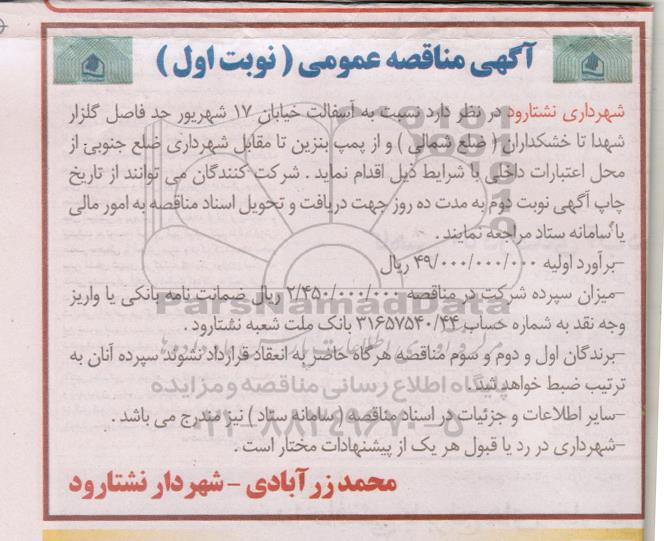 آگهی مناقصه عمومی ( نوبت اول )
شهرداری نشتارود در نظر دارد نسبت به آسفالت خیابان ۱۷ شهریور حد فاصل گلزار
شهدا تا خشکداران ( ضلع شمالی ) و از پمپ بنزین تا مقابل شهرداری ضلع جنوبی از
محل اعتبارات داخلی با شرایط ذیل اقدام نماید . شرکت کنندگان می توانند از تاریخ
چاپ آگهی نوبت دوم به مدت ده روز جهت دریافت و تحویل اسناد مناقصه به امور مالی
یا سامانه ستاد مراجعه نمایند .
-برآورد اولیه ۴۹/۰۰۰/۰۰۰/۰۰۰ ریال
-میزان سپرده شرکت در مناقصه ۲/۴۵۰/۰۰۰/۰۰۰ ریال ضمانت نامه بانکی یا واریز
وجه نقد به شماره حساب ۳۱۶۵۷۵۴۰/۴۴ بانک ملت شعبه نشتارود .
-برندگان اول و دوم و سوم مناقصه هرگاه حاضر به انعقاد قرارداد نشوند سپرده آنان به
ترتیب ضبط خواهد شد.
-سایر اطلاعات و جزئیات در اسناد مناقصه ( سامانه ستاد ) نیز مندرج می باشد .
-شهرداری در رد یا قبول هر یک از پیشنهادات مختار است .
محمد زر آبادی - شهردار نشتارود
ParsNamadData
پایگاه اطلاع رسانی مناقصه و مزایده
۰۲۱-۸۸۳۴۹۶۷۰-۵